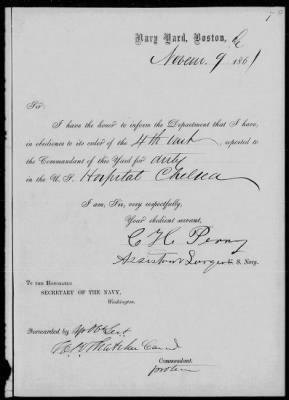 Navy Yard, Boston,
Novem. 9 1861
Sir:
I have the honor to inform the Department that I have,
in obedience to its order of the 4th inst, reported to
the Commandant of this Yard for duty
in the U. S. Hospital Chelsea
I am, Sir, very respectfully,
Your obedient servant,
C H Perry
Assistant Surgeon U. S. Navy.
To the Honorable
SECRETARY OF THE NAVY,
Washington.
Forwarded by
H. K. Thatcher Comd
Commandant.
pro tem